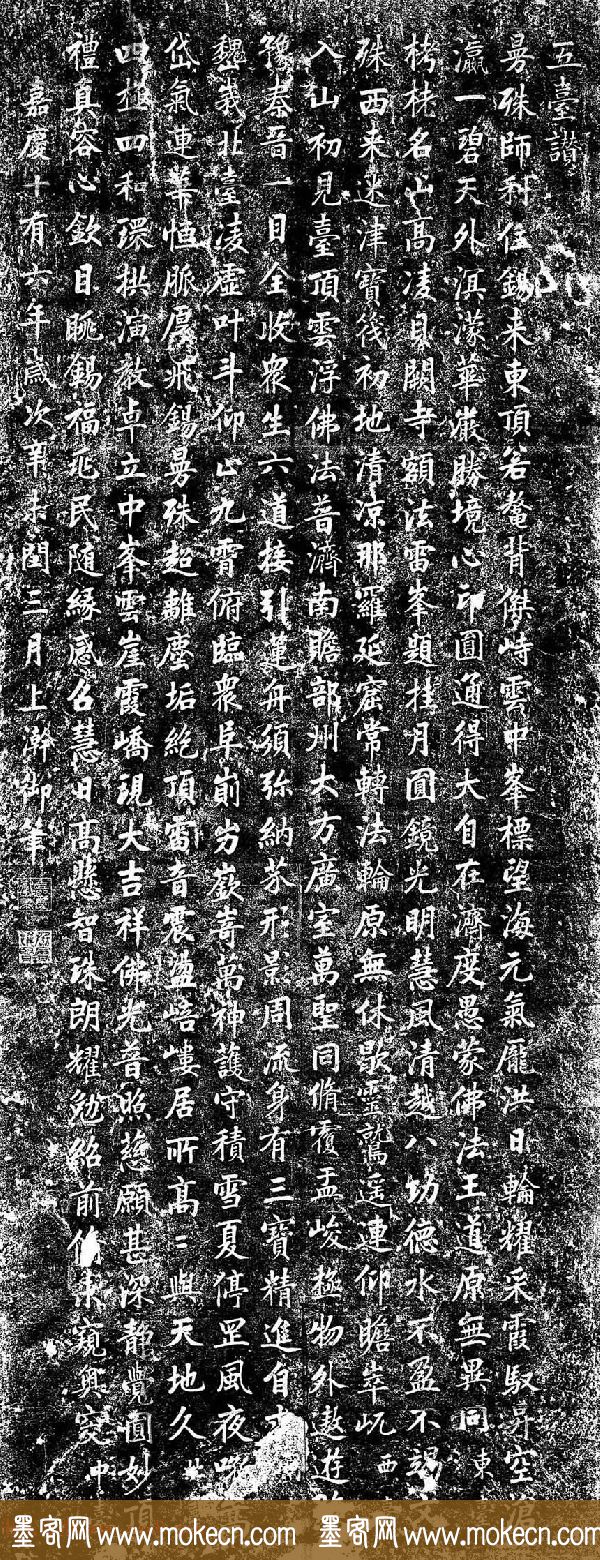 五臺讃
曼殊師利住錫来東頂若鼇背傑峙雲中峯標望海元氣厖洪日輪耀采霞馭昇空滄
瀛一碧天外溟濛華嚴勝境心印圓通得大自在濟度愚蒙佛法王道原無異同東
栲栳名山高凌貝闕寺額法雷峯題挂月圓鏡光明慧風清越八功德水不盈不竭文
殊西来迷津寶筏初地清凉那羅延窟常轉法輪原無休歇靈鷲遥連仰瞻崒屼西
入山初見臺頂雲浮佛法普濟南瞻部州大方廣室萬聖同脩覆盂峻極物外遨遊
豫秦晉一目全收衆生六道接引蓮舟須弥納芥形影周流身有三寶精進自
巍峩北臺凌虚叶斗仰止九霄俯臨衆阜崱屴嶔崎萬神護守積雪夏停罡風夜
岱氣連華恒脈厚飛錫曼殊超離塵垢絶頂雷音震盪嵱嶁居所高二與天地久
四埵四和環拱演教卓立中峯雲崖霞嶠現大吉祥佛光普照慈願甚深静覺圓妙頂
禮真容心欽目眺錫福兆民随緣感召慧日高懸智珠朗耀勉紹前窺奥窔中
嘉慶十有六年歲次辛未閏三月上澣御筆
墨客网 www.mokecn.com 墨客网 www.mokecn.com